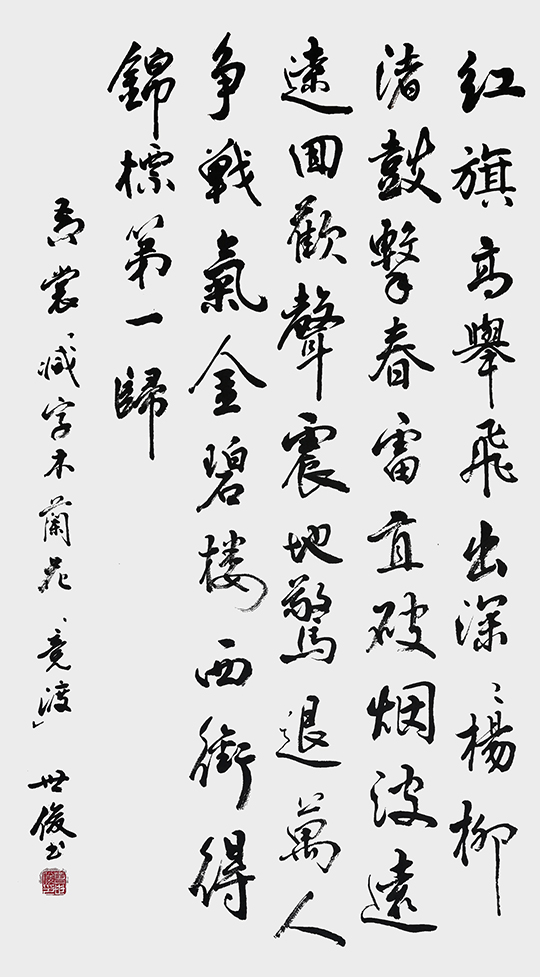 红旗高舉飛出深〻楊柳
渚鼓擊春雷直破烟波遠
遠回歡聲震地驚退萬人
争戰氣金碧楼西銜得
錦標第一歸
黄裳「減字木蘭花、竞渡」 世俊书